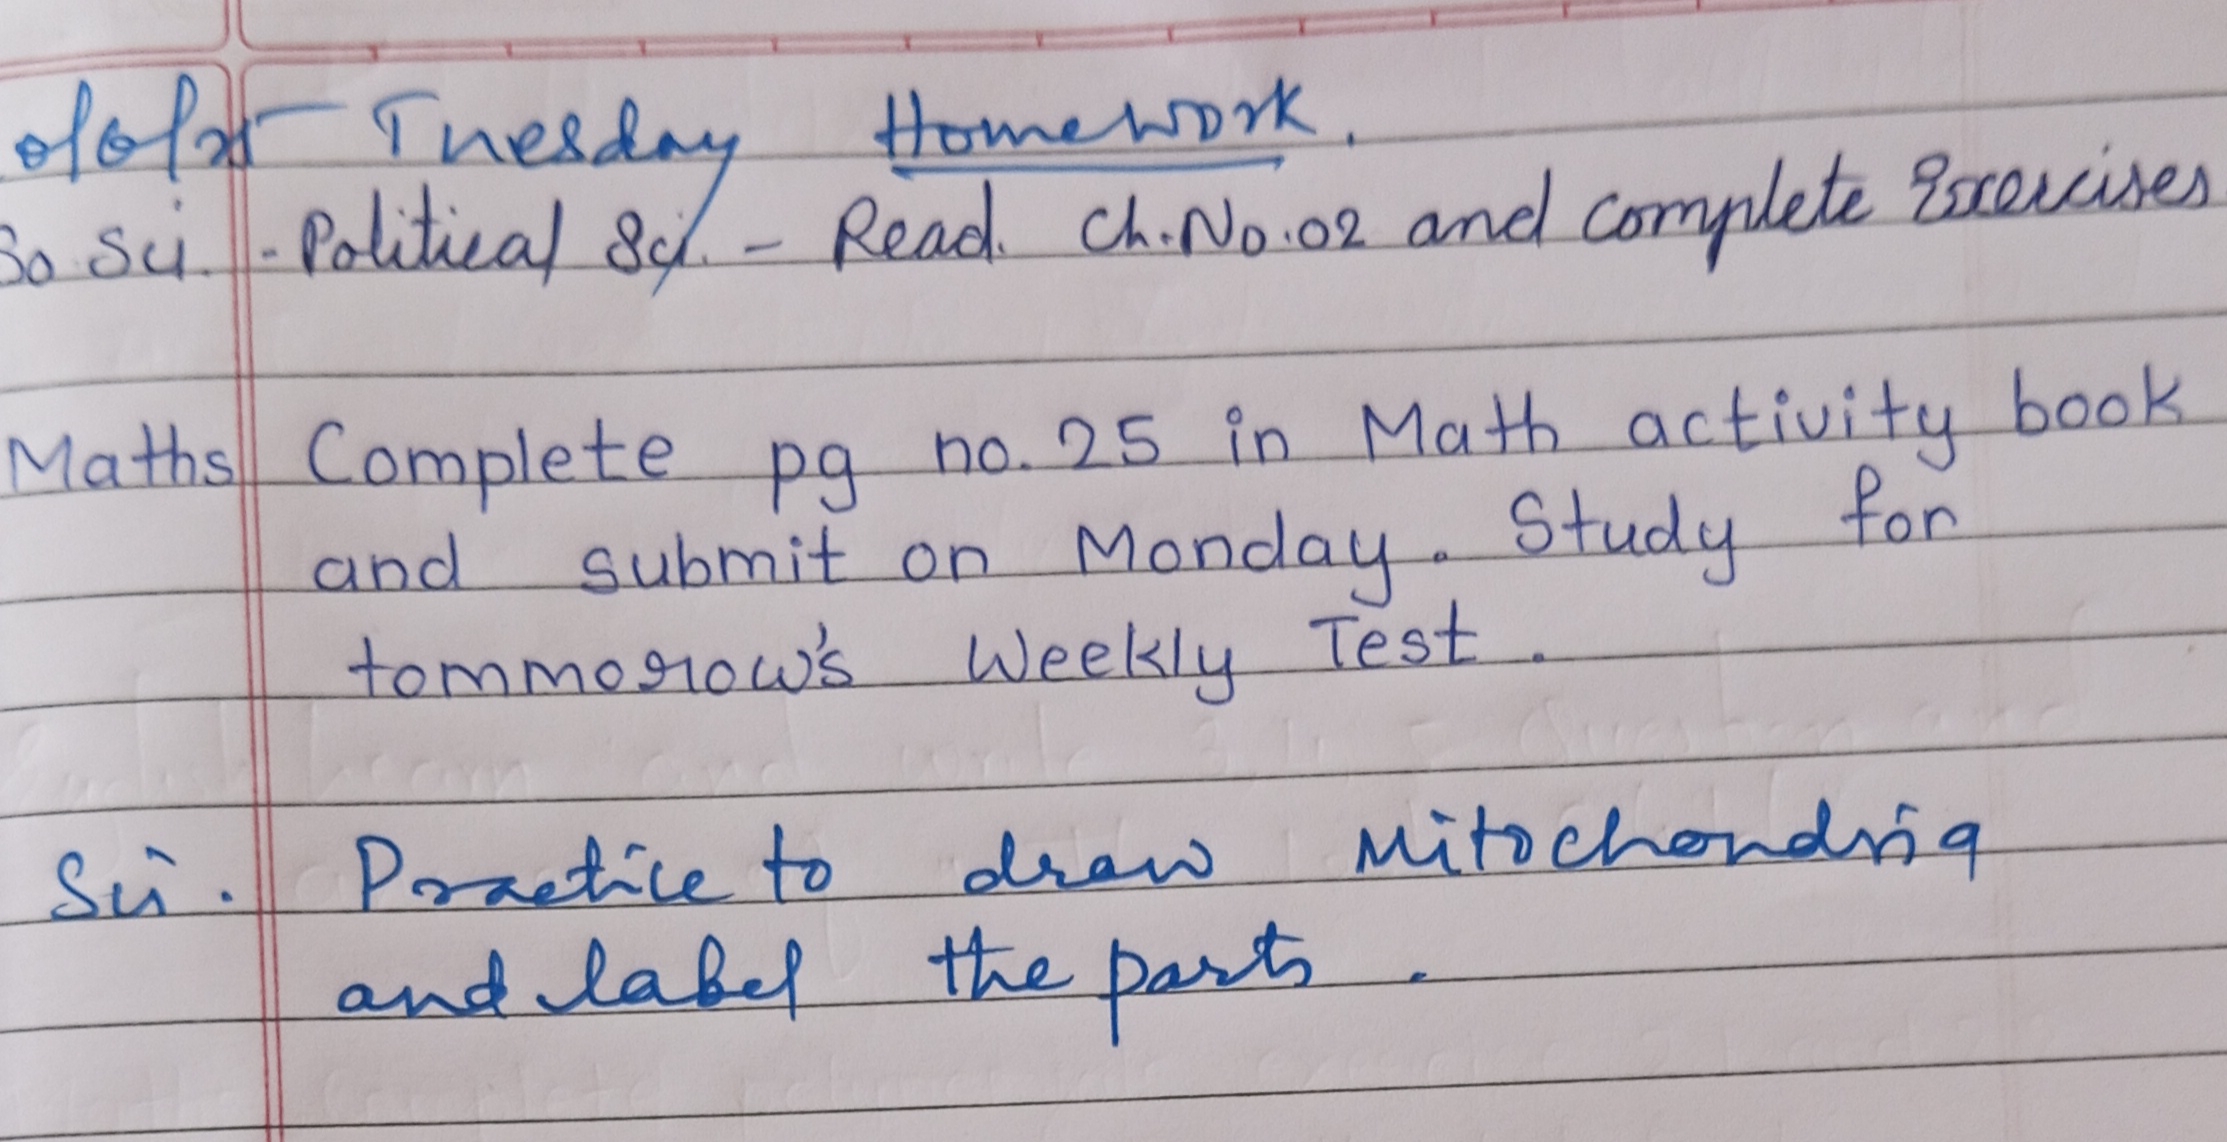 Tuesday Homework.
So. Sci. - Political Sci. - Read. Ch. No. 02 and complete Exercises
Maths Complete pg no. 25 in Math activity book
and submit on Monday. Study for
tommorow's Weekly Test.
Sci. Practice to draw Mitochondria
and label the parts.